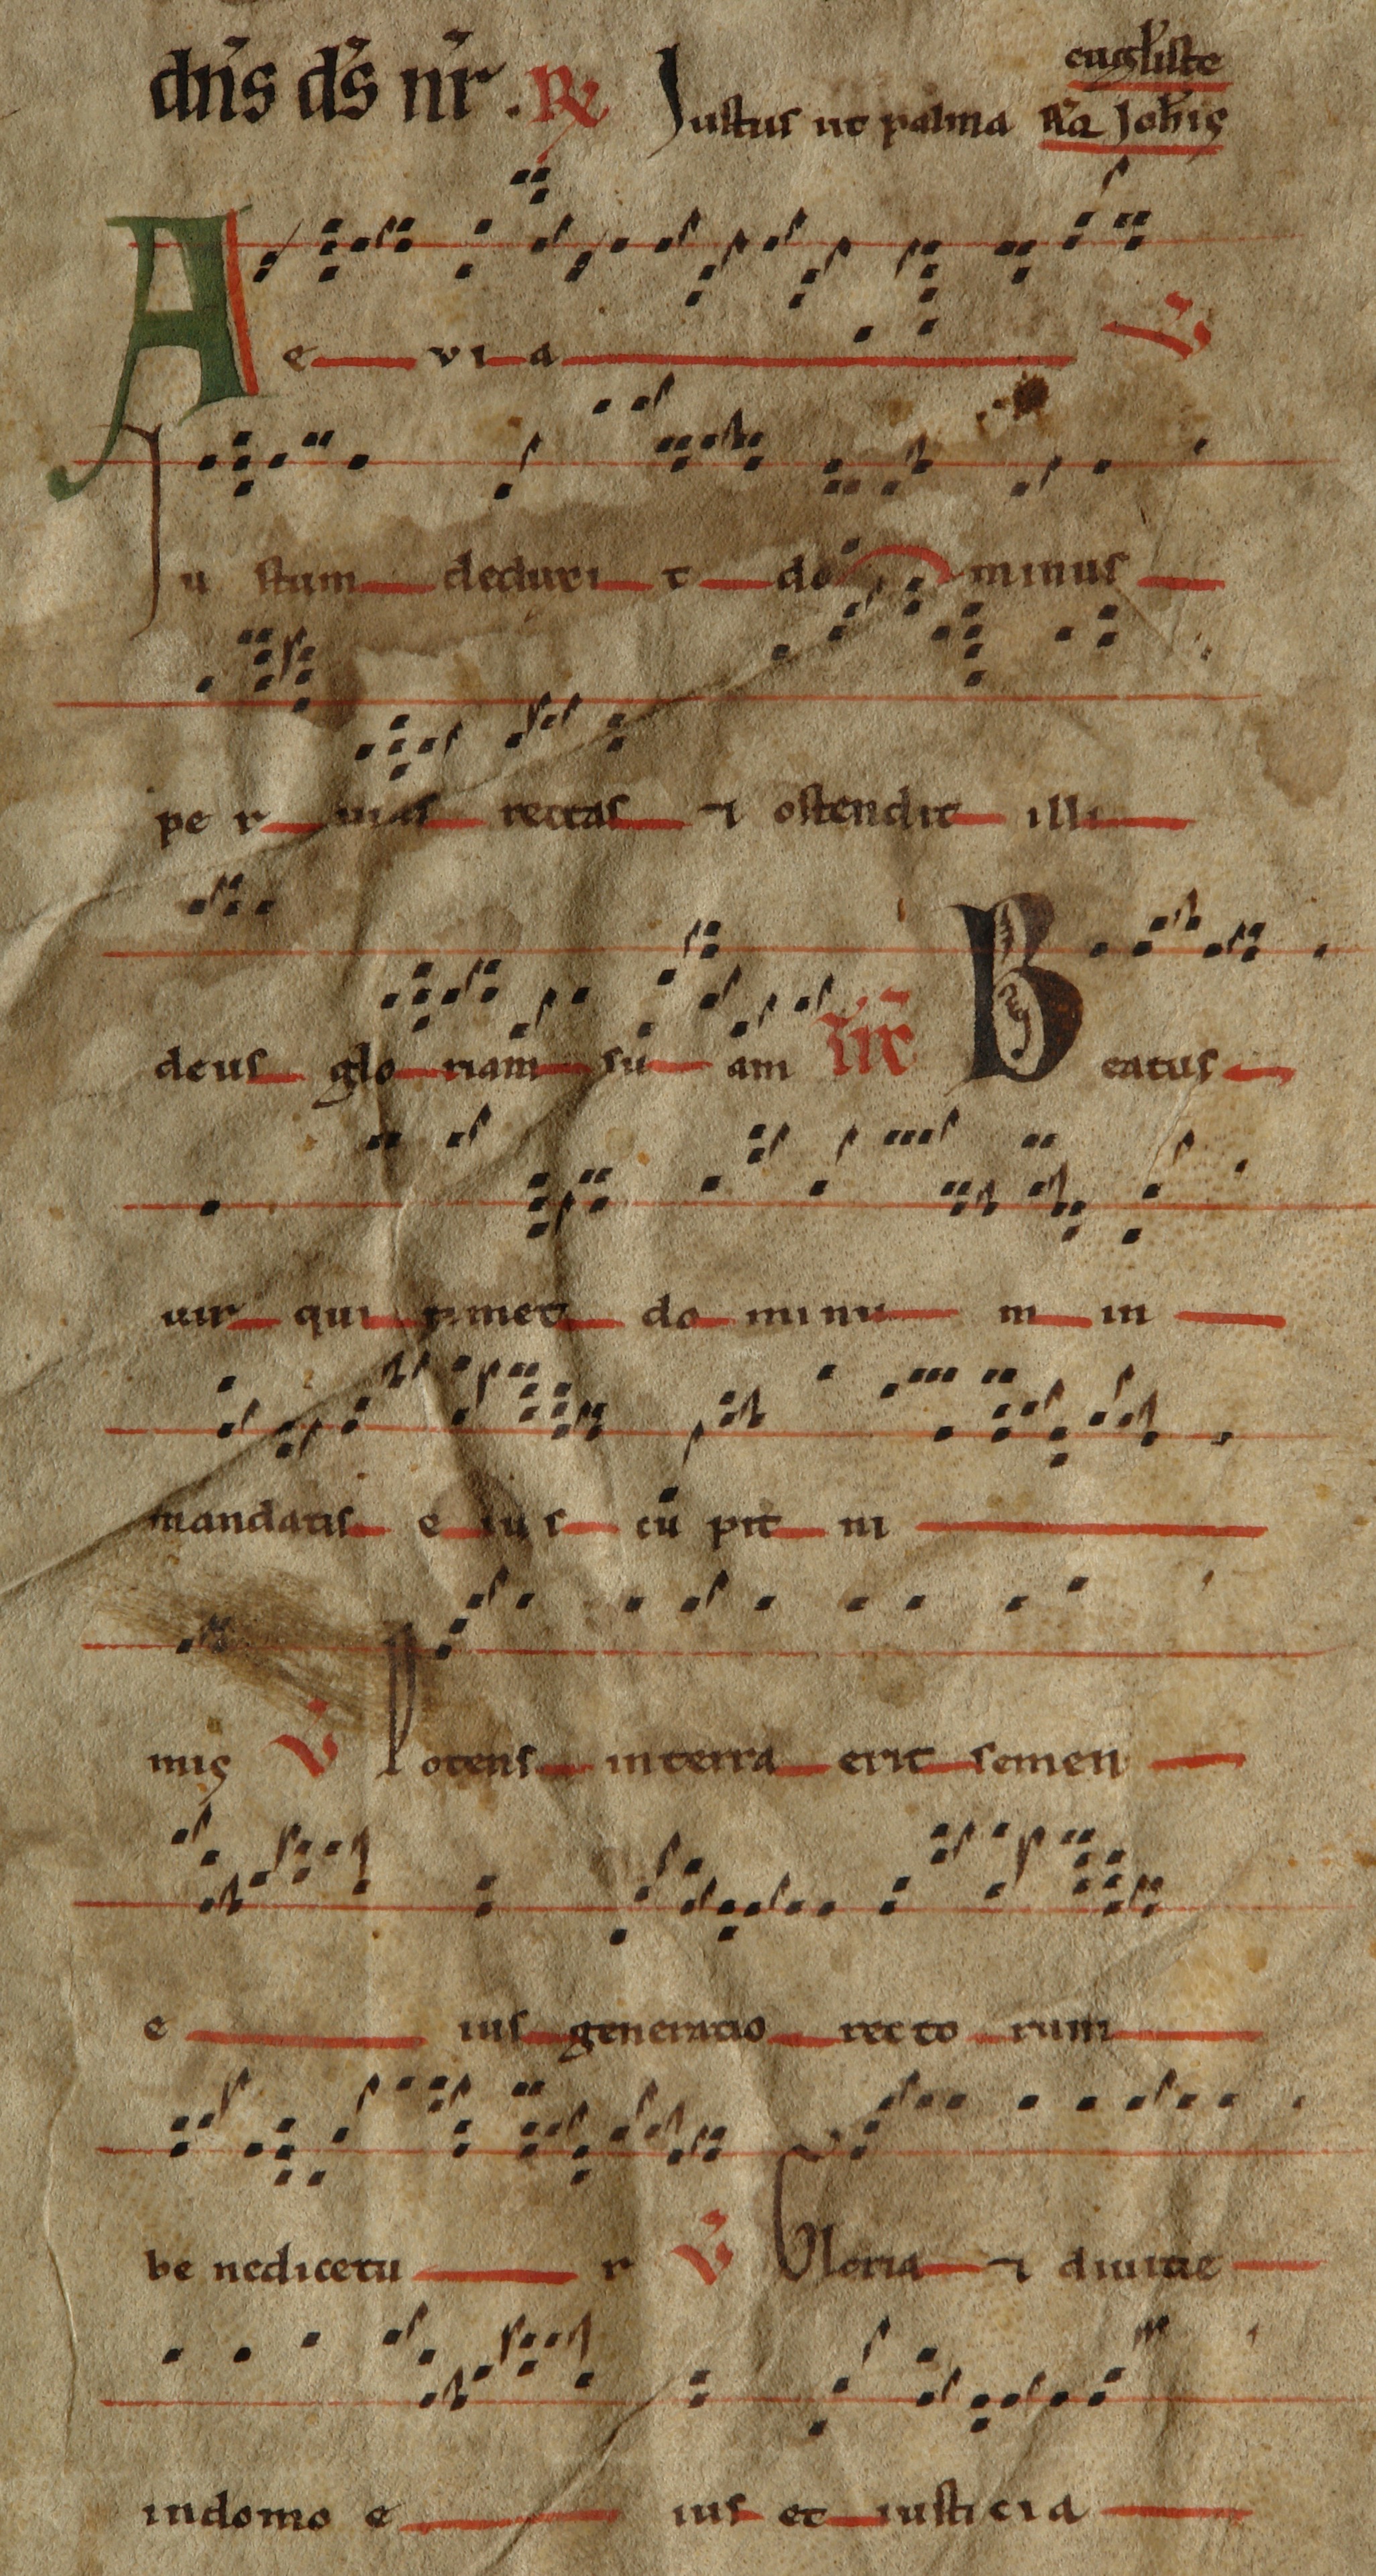 dn̄s ds̄ nr̄. R᷒ Justus ut palma
eugl̄iste
Rq̄ Joh̄is
A e v i a V̄
Ju stum deduxi t do minus
pe r uias rectas ⁊ ostendit illi
deus glo riam su am Beatus
uir qui timet do minu m in
mandatis e ius cu pit ni
mis V̄ Potens in terra erit semen
e ius generatio recto rum
be nedicetu r V̄ Gloria ⁊ diuitie
indomo e ius et iusticia